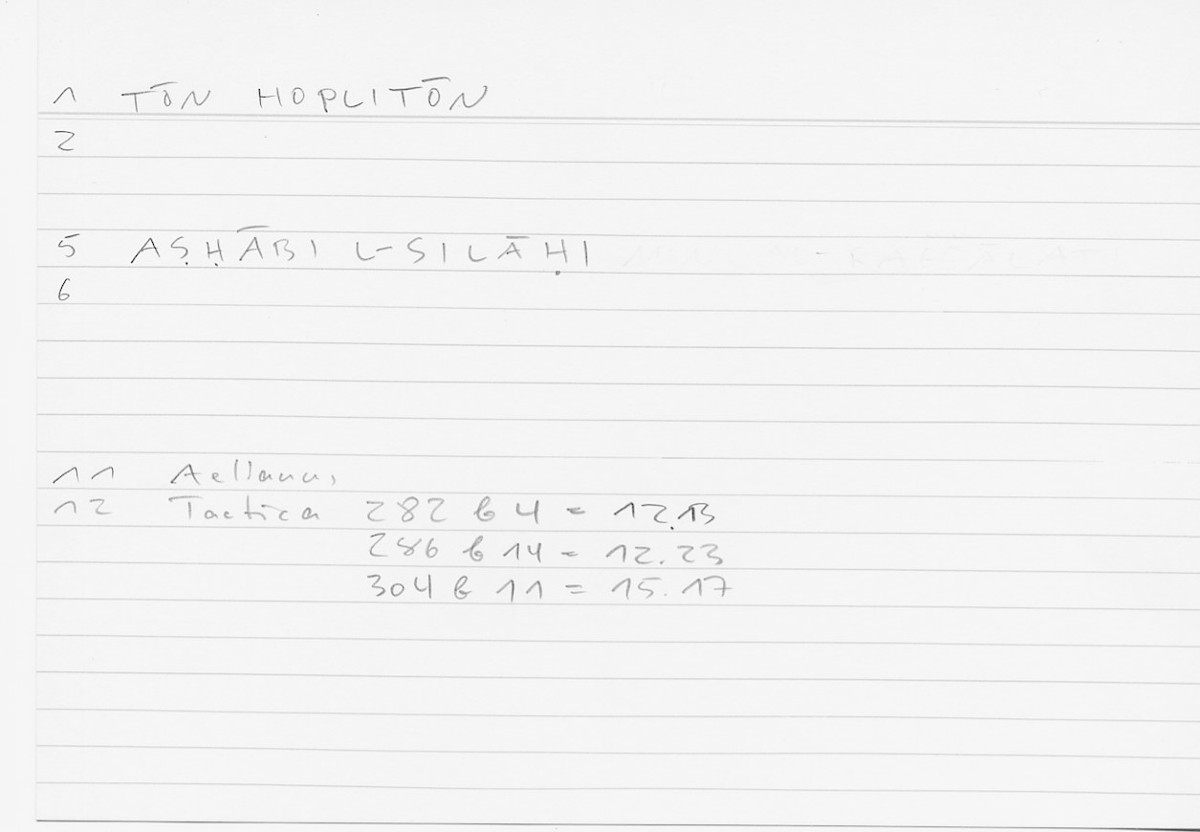 1 TŌN HOPLITŌN
2
5 AṢḤĀBI L-SILĀḤI
6
11 Aelianus,
12 Tactica 282 b 4 = 12.13
286 b 14 = 12.23
304 b 11 = 15.17